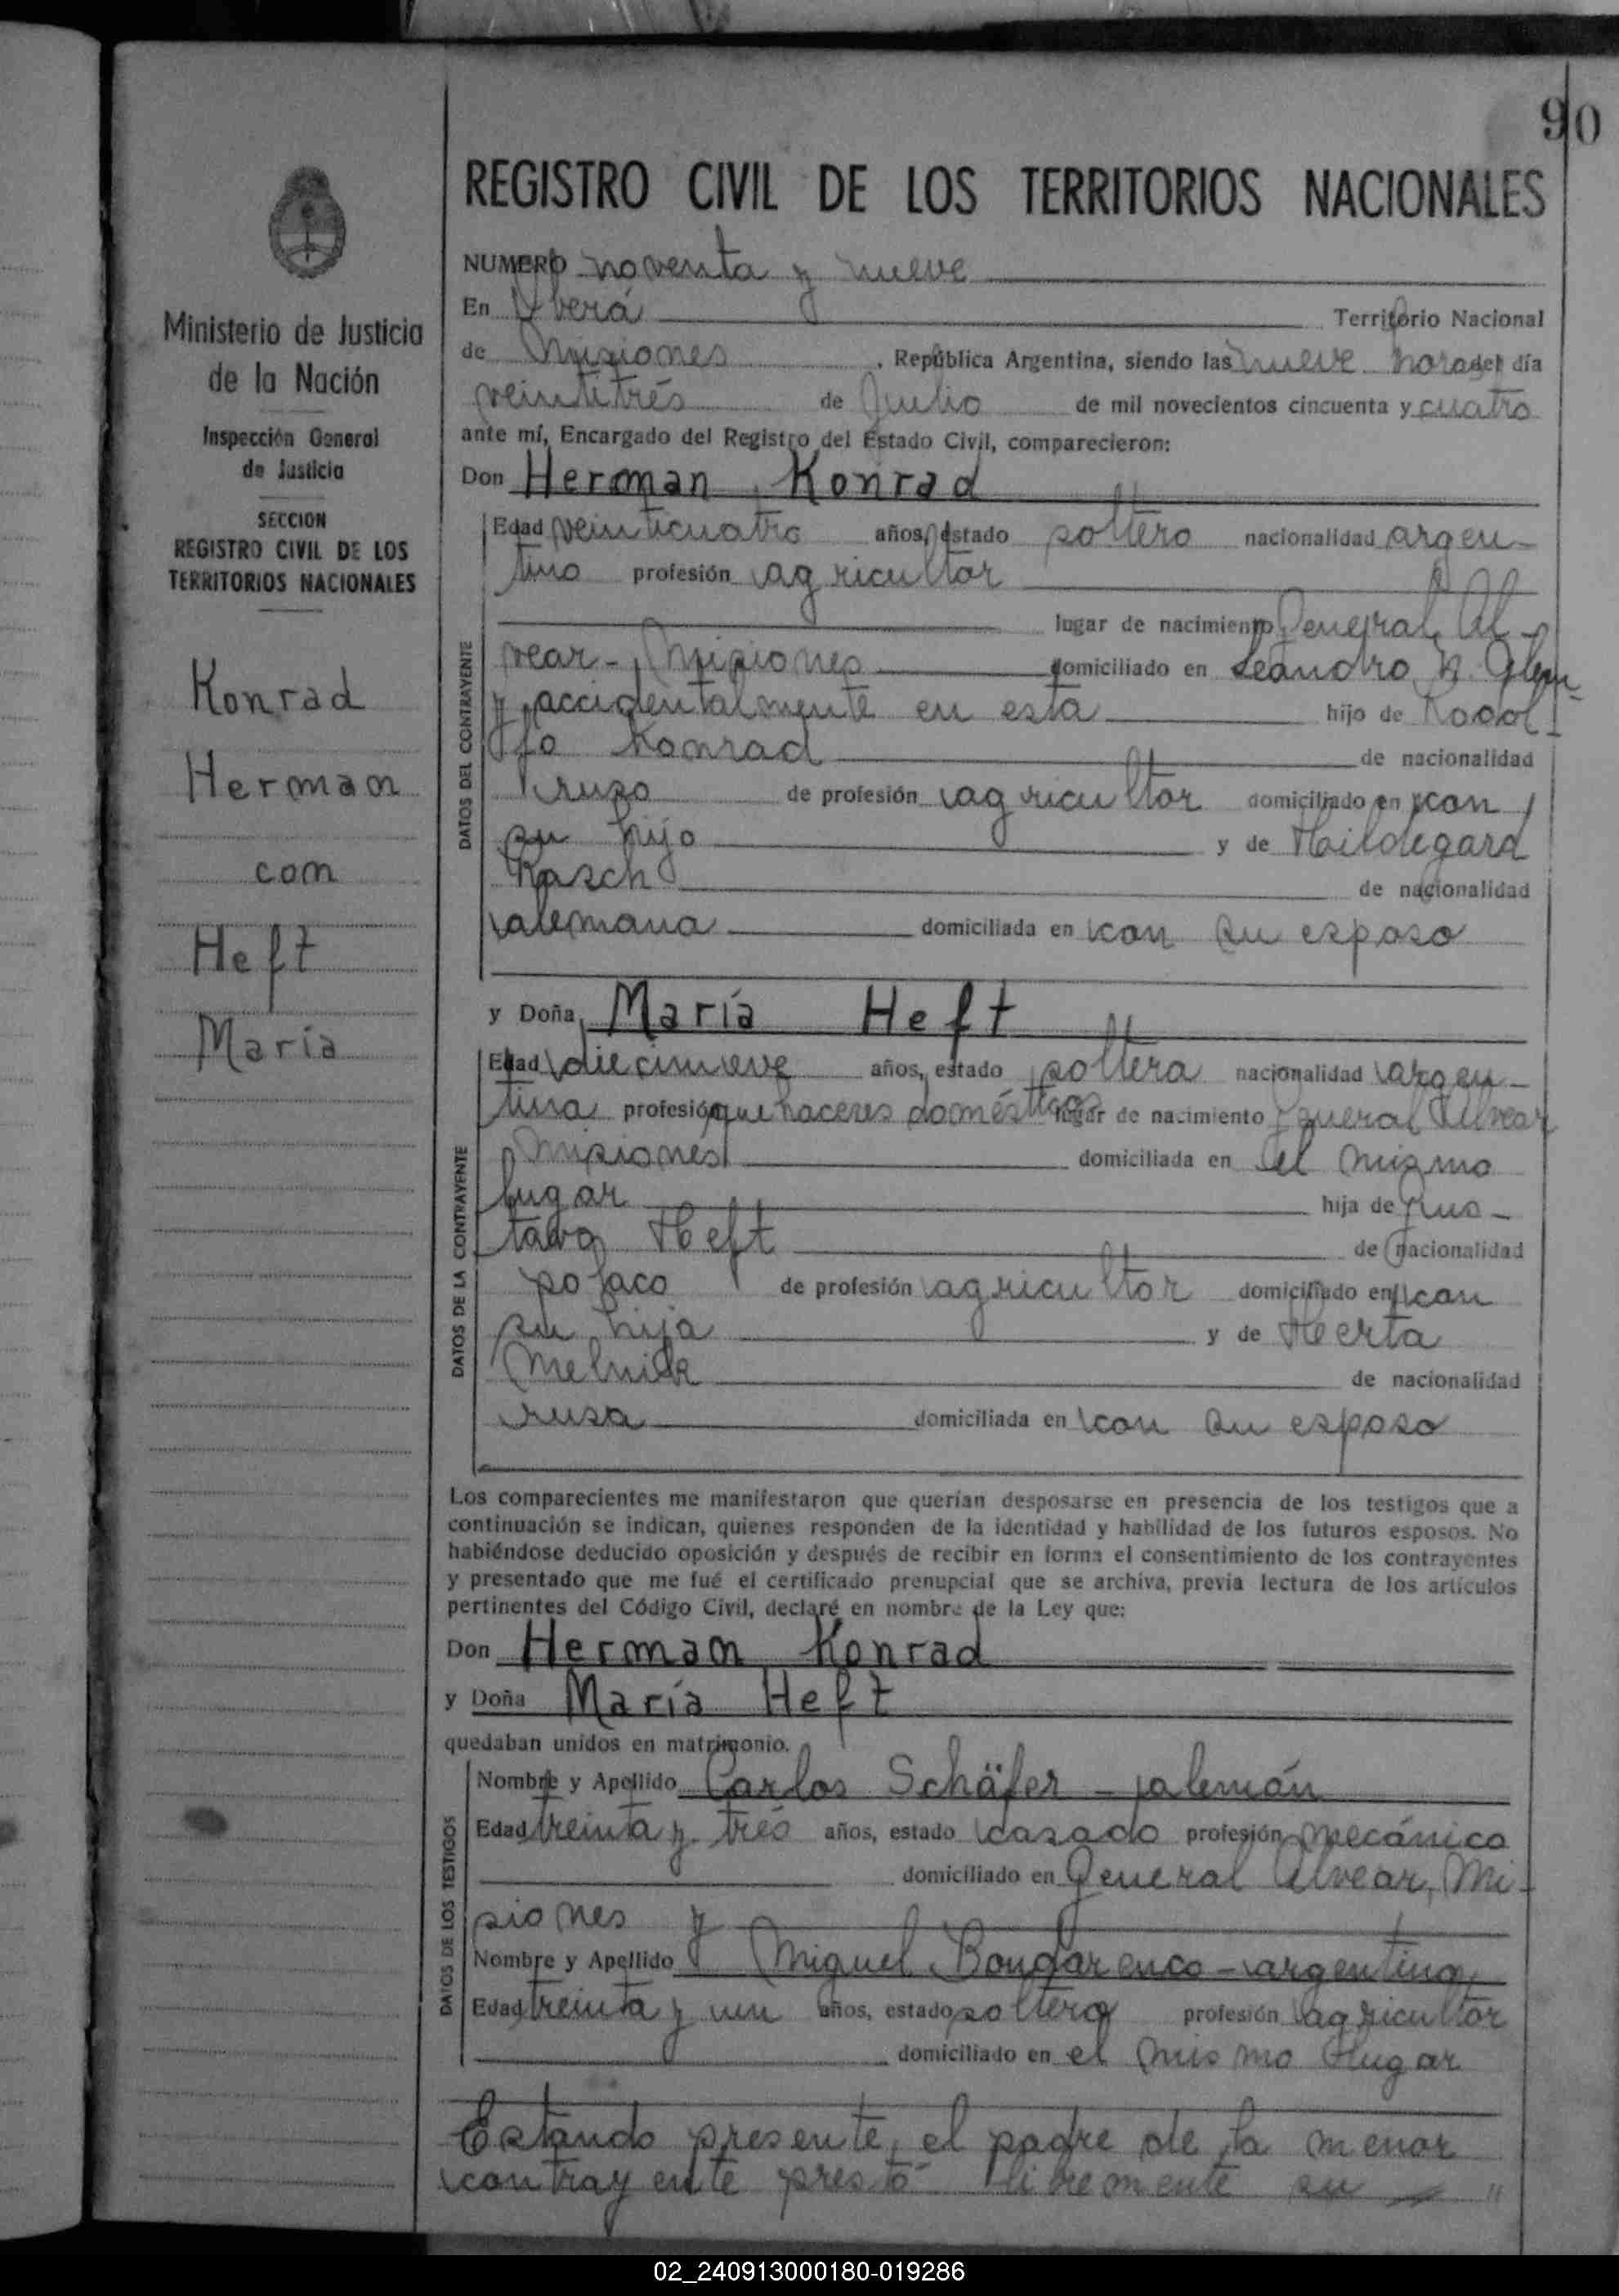 90
REGISTRO CIVIL DE LOS TERRITORIOS NACIONALES
Ministerio de Justicia
de la Nación
Inspección General
de Justicia
SECCION
REGISTRO CIVIL DE LOS
TERRITORIOS NACIONALES
Konrad
Herman
con
Heft
María
NUMERO noventa y nueve
En Oberá Territorio Nacional
de Misiones, República Argentina, siendo las nueve horas del día
veintitrés de Julio de mil novecientos cincuenta y cuatro
ante mí, Encargado del Registro del Estado Civil, comparecieron:
Don Herman Konrad
DATOS DEL CONTRAYENTE
Edad veinticuatro años, estado soltero nacionalidad argen-
tino profesión agricultor
lugar de nacimiento General Al-
vear - Misiones domiciliado en Leandro N. Alem-
y accidentalmente en esta hijo de Rodol-
fo Konrad de nacionalidad
ruso de profesión agricultor domiciliado en con
su hijo y de Haildegard
Rasch de nacionalidad
alemana domiciliada en con su esposo
y Doña María Heft
DATOS DE LA CONTRAYENTE
Edad diecinueve años, estado soltera nacionalidad argen-
tina profesión quehaceres domésticos lugar de nacimiento General Alvear
Misiones domiciliada en el mismo
lugar hija de Gus-
tavo Heft de nacionalidad
polaco de profesión agricultor domiciliado en con
su hija y de Herta
Melnik de nacionalidad
rusa domiciliada en con su esposo
Los comparecientes me manifestaron que querían desposarse en presencia de los testigos que a
continuación se indican, quienes responden de la identidad y habilidad de los futuros esposos. No
habiéndose deducido oposición y después de recibir en forma el consentimiento de los contrayentes
y presentado que me fué el certificado prenupcial que se archiva, previa lectura de los artículos
pertinentes del Código Civil, declaré en nombre de la Ley que:
Don Herman Konrad
y Doña María Heft
quedaban unidos en matrimonio.
DATOS DE LOS TESTIGOS
Nombre y Apellido Carlos Schäfer - alemán
Edad treinta y tres años, estado casado profesión mecánico
domiciliado en General Alvear, Mi-
siones y
Nombre y Apellido Miguel Bondarenco - argentino
Edad treinta y un años, estado soltero profesión agricultor
domiciliado en el mismo lugar
Estando presente, el padre de la menor
contrayente prestó libremente su "
02_240913000180-019286